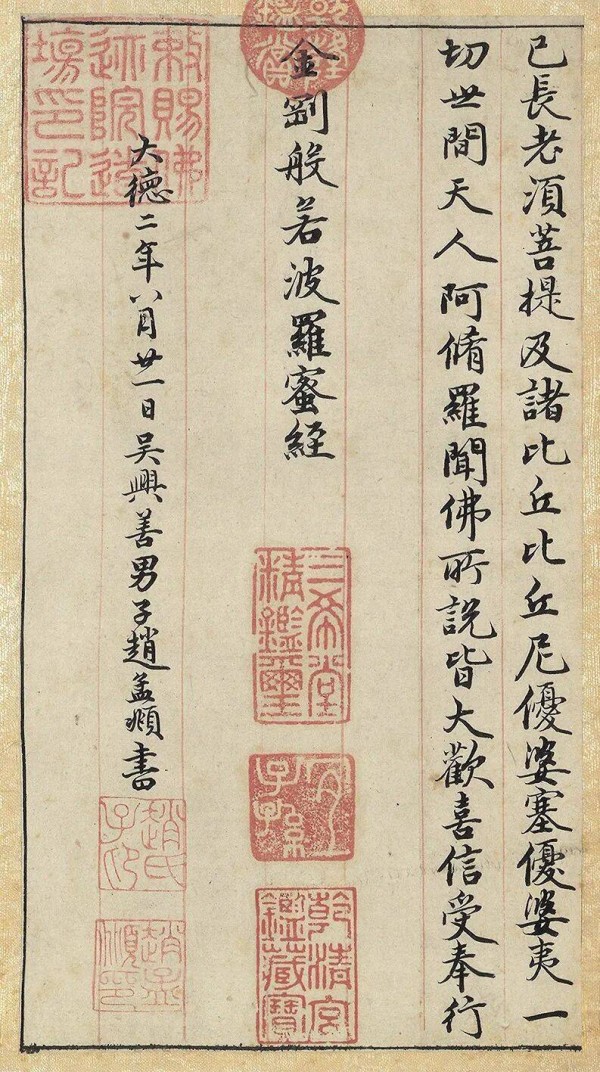 已長老須菩提及諸比丘比丘尼優婆塞優婆夷一
切世間天人阿脩羅聞佛所說皆大歡喜信受奉行
乾隆鑑賞
金剛般若波羅蜜經
三希堂精鑑璽
宜子孫
乾清宮鑑藏寶
大德二年八月廿一日吴興善男子趙孟頫書
趙氏子昂
趙孟頫印
敕賜佛迹院道場印記